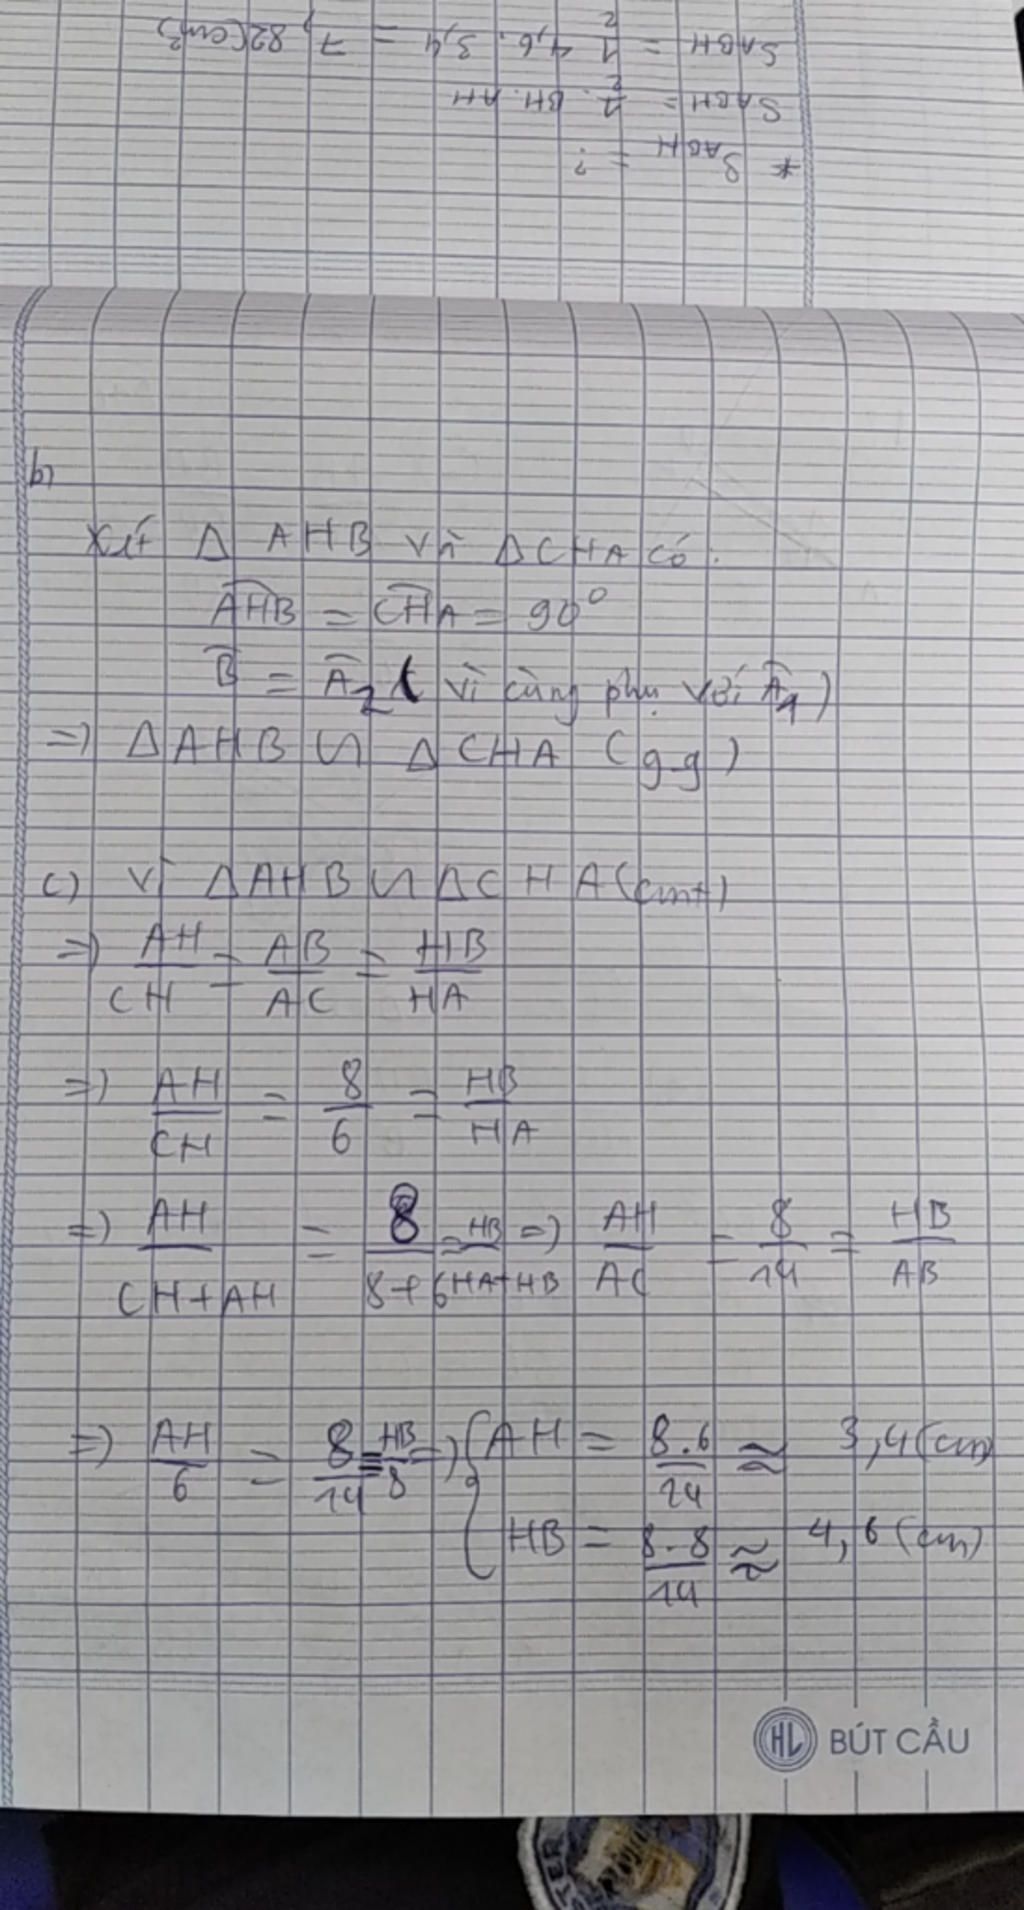 S_ABH = 1/2 4,6. 3,4 = 7,82(cm²)
S_ABH = 1/2. BH. AH
* S_ABH = ?
b)
Xét Δ AHB và ΔCHA có:
AHB = CHA = 90°
B = A₂ ( vì cùng phụ với A₁)
=> ΔAHB ᔕ ΔCHA (g.g)
c) Vì ΔAHB ᔕ ΔCHA(cmt)
=> AH/CH = AB/AC = HB/HA
=> AH/CH = 8/6 = HB/HA
=> AH/CH+AH = 8/8+6 = HB/HA+HB => AH/AC = 8/14 = HB/AB
=> AH/6 = 8/14 = HB/8 => { AH = 8.6/14 ≈ 3,4(cm)
HB = 8.8/14 ≈ 4,6(cm)
HL BÚT CẦU